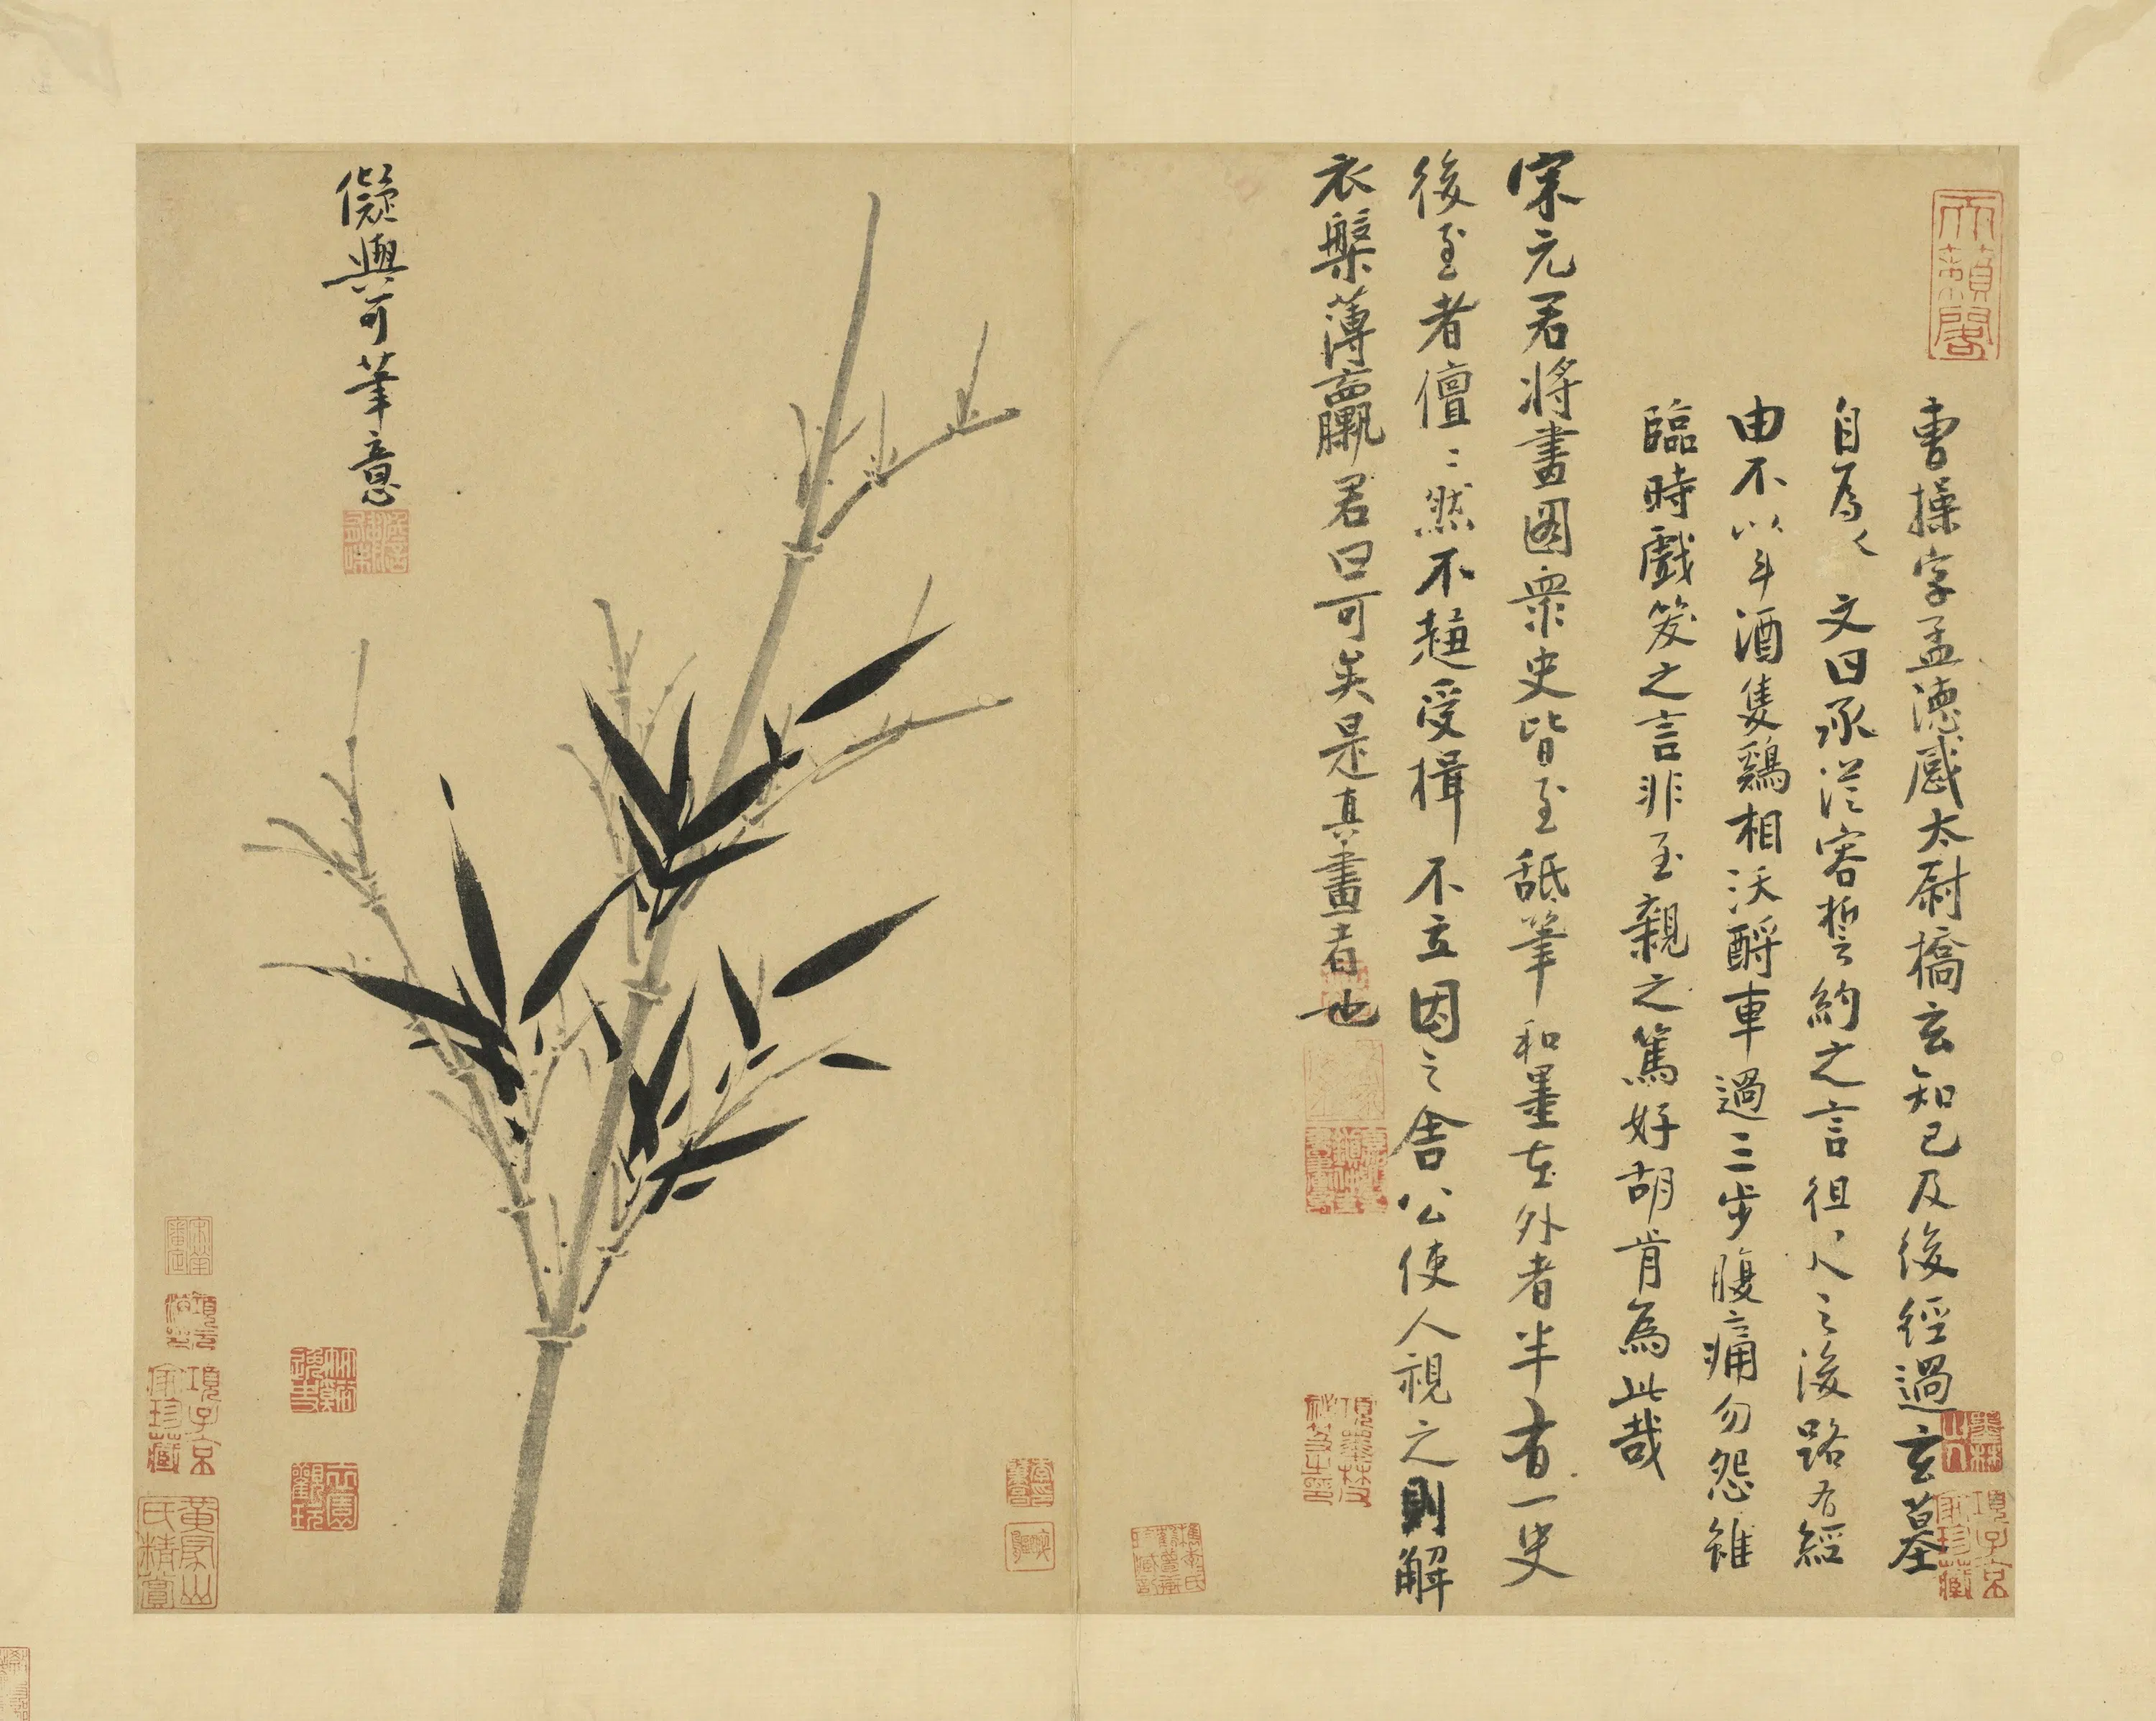 天籟閣
曹操字孟德感太尉橋玄知己及後經過玄墓
自為文曰承從容誓約之言徂之後路有經
由不以斗酒隻鷄相沃酹車過三步腹痛勿怨雖
臨時戲笑之言非至親之篤好胡肯為此哉
宋元君將畫圖衆史皆至舐筆和墨在外者半有一史
後至者儃〻然不趨受揖不立因之舍公使人視之則解
衣槃薄臝君曰可矣是真畫者也
墨林山人
項子京家珍藏
儗與可筆意
項子京家珍藏